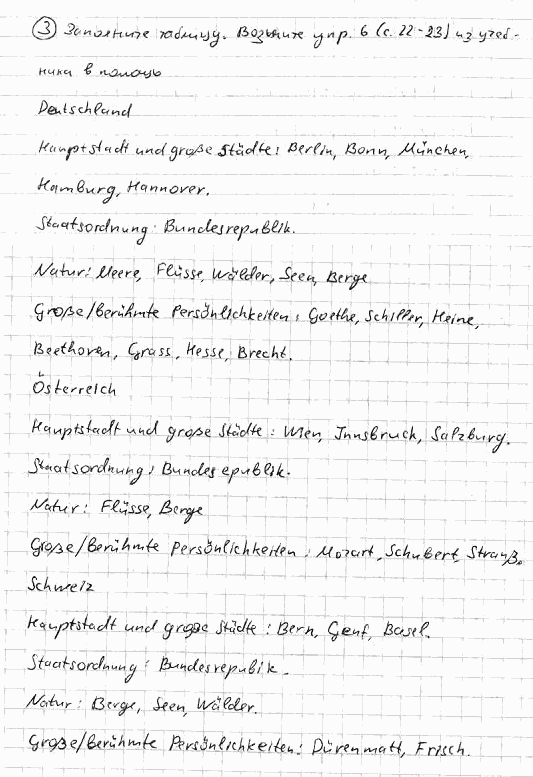 ③ Заполните таблицу. Возьмите упр. 6 (с. 22-23) из учеб-
ника в помощь
Deutschland
Hauptstadt und große Städte: Berlin, Bonn, München,
Hamburg, Hannover.
Staatsordnung: Bundesrepublik.
Natur: Meere, Flüsse, Wälder, Seen, Berge
Große/berühmte Persönlichkeiten: Goethe, Schiller, Heine,
Beethoven, Grass, Hesse, Brecht.
Österreich
Hauptstadt und große Städte: Wien, Innsbruck, Salzburg.
Staatsordnung: Bundes epublik.
Natur: Flüsse, Berge
Große/berühmte Persönlichkeiten: Mozart, Schubert, Strauß.
Schweiz
Hauptstadt und große Städte: Bern, Genf, Basel.
Staatsordnung: Bundesrepubik.
Natur: Berge, Seen, Wälder.
Große/berühmte Persönlichkeiten: Dürenmatt, Frisch.